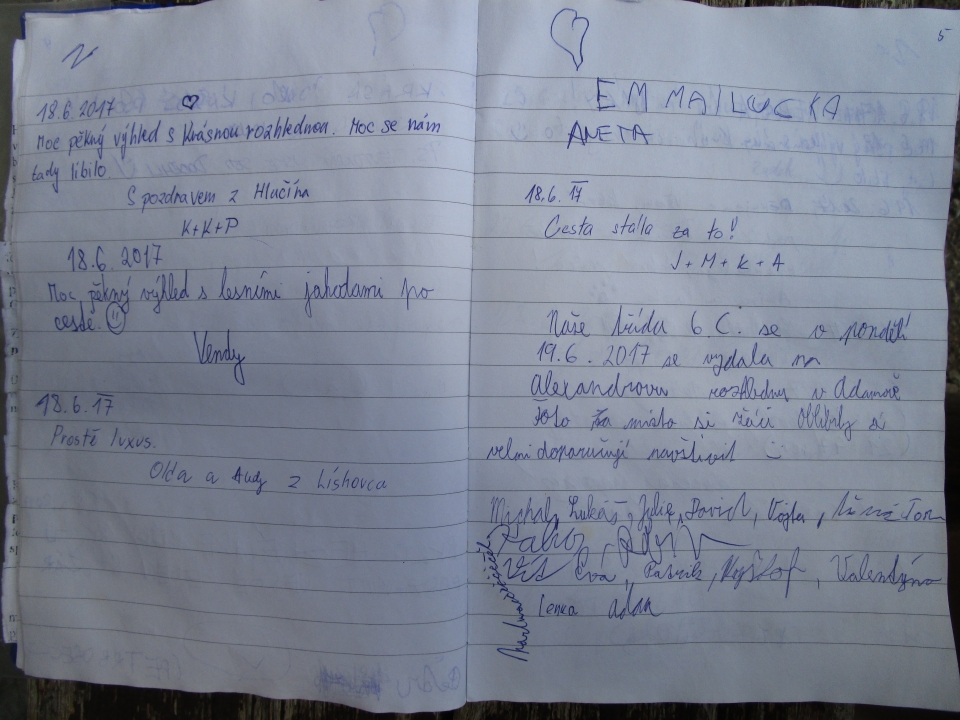 18.6.2017
Moc pěkný výhled s Krásnou rozhlednou. Moc se nám
tady líbilo
S pozdravem z Hlučína
K+K+P
18.6.2017
Moc pěkný výhled s lesními jahodami po
cestě.
Vendy
18.6.17
Prostě luxus.
Olda a Audy z Lískovca
5
EMMAILUCKA
ANETA
18.6.17
Cesta stálla za to!
J+M+K+A
Naše třída 6 C. se v pondělí
19.6.2017 se vydala na
Alexandrovu rozhlednu v Adamově
Toto místo si žáci oblíbily a
velmi doporučují navštívit
Michal, Lukáš, Julie, David, Vojta, Tom
Vít Eva, Patrik, Kryštof, Valentýna
Lenka Adam